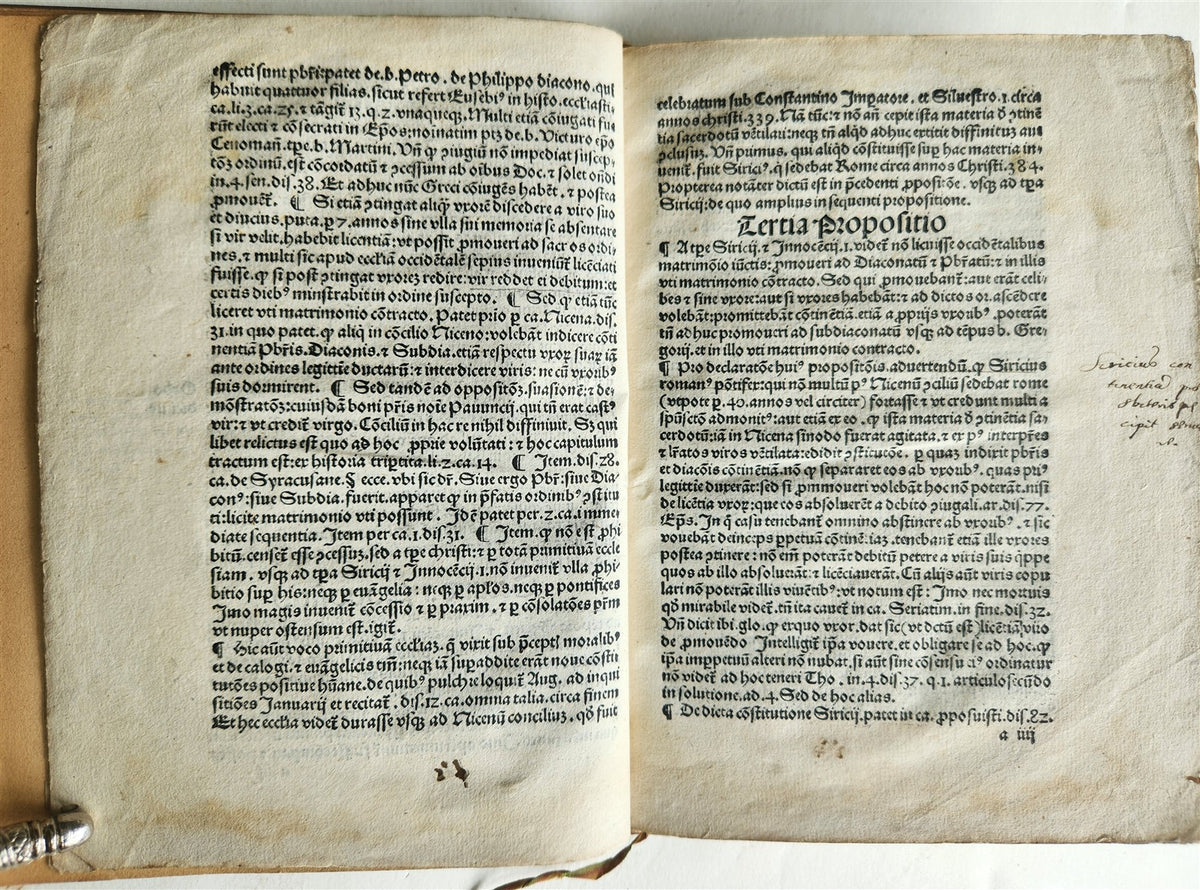 effecti sunt pbr̃i: patet de .b. Petro . de Philippo diacono . qui
habuit quattuor filias . sicut refert Eusebiꝰ in histo. ecclasti-
ca. li. 3. ca. 25. ⁊ tãgit̃ 13. q. 2. vnaqueqꝫ. Multi etiã cõiugati fue-
rũt electi ⁊ cõsecrati in Ep̃os: noĩatim ptꝫ de .b. Victuro ep̃o
Cenomañ. tꝑe .b. Martini. Vñ ꝙ ɔiugiũ nõ impediat suscep-
tõꝫ ordinũ. est cõcordatũ ⁊ ɔcessum ab oĩbus Doc. ⁊ solet onđi
in. 4. sen. dis. 38. Et adhuc nũc Greci cõiuges habẽt . ⁊ postea
ꝓmouẽt. ¶ Si etiã ɔtingat aliqꝫ vxorẽ discedere a viro suo
et diucius . puta . ꝑ 7. annos sine vlla sui memoria se absentare
si vir velit . habebit licentiã: vt possit ꝓmoueri ad sacros ordi-
nes . ⁊ multi sic apud ecclĩa occidẽtalẽ sepius inueniũt̃ licẽciati
fuisse. ꝙ si post ɔtingat vxorẽ redire: vir reddet ei debitum: et
certis diebꝰ ministrabit in ordine suscepto. ¶ Sed ꝙ etiã tũc
liceret vti matrimonio cõtracto. Patet prĩo ꝑ ca. Nicena. dis.
31. in quo patet . ꝙ aliq̃ in cõcilio Niceno: volebãt indicere cõti
nentiã Pbr̃is. Diaconis. ⁊ Subdia. etiã respectu vxoꝝ suaꝝ iã
ante ordines legittĩe ductaꝝ: ⁊ interdicere viris: ne cũ vxoribꝰ
suis dormirent. ¶ Sed tandẽ ad oppositõꝫ: suasionẽ: ⁊ de-
mõstratõꝫ: cuiusdã boni pr̃is noĩe Pauuncij. qui tñ erat castꝰ
vir: ⁊ vt credit̃ virgo. Cõciliũ in hac re nihil diffiniuit. Sꝫ qui
libet relictus est quo ad hoc ꝓprie volũtati: ⁊ hoc capitulum
tractum est: ex historia tripti̇ta. li. 2. ca. 14. ¶ Item. dis. 28.
ca. de Syracusane. §. ecce. vbi sic dr̃. Siue ergo Pbr̃: siue Dia-
conꝰ: siue Subdia. fuerit . apparet ꝙ in p̃fatis ordinibꝰ ɔstitu
ti: licite matrimonio vti possunt . Idẽ patet per. 2. ca. i mme-
diate sequentia. Item per ca. 1. dis. 31. ¶ Item. ꝙ nõ est ꝓhi
bitũ. censet̃ esse ɔcessuꝫ. sed a tꝑe christi: ⁊ ꝑ totã primitiuã eccle
siam . vsqꝫ ad tꝑa Siricij ⁊ Innocẽcij. 1. nõ inuenit̃ vlla ꝓhi-
bitio suꝑ his: neqꝫ ꝑ euãgelia: neqꝫ ꝑ aptos. neqꝫ ꝑ pontifices
Imo magis inuenit̃ cõcessio ⁊ ꝑ praxim . ⁊ ꝑ cõsolatões pr̃m
vt nuper ostensum est . igit̃.
¶ Hic aũt voco primitiuã eccl̃iaꝫ. q̃ vixit sub p̃cept̃ moralibꝰ
et de calogi . ⁊ euãgelicis tm̃: neqꝫ iã suꝑaddite erãt noue cõsti
tutões positiue hũane. de quibꝰ pulchre loquit̃ Aug. ad inqui
sitiões Januarij et recitat̃ . dis. 12. ca. omnia talia . circa finem
Et hec eccl̃ia videt̃ durasse vsqꝫ ad Nicenũ conciliuꝫ . qđ fuit
celebratum sub Constantino Imperatore . et Siluestro. 1. circa
annos christi. 339. Nã tũc: ⁊ nõ añ cepit ista materia đ ɔtinẽ
tia sacerdotũ vẽtilari: neqꝫ tñ aliqđ adhuc extitit diffinituꝫ aut
ɔclusuꝫ. Vñ primus, qui aliqđ cõstituisse suꝑ hac materia in-
uenit̃. fuit Siriciꝰ. q̃ sedebat Rome circa annos Christi. 384.
Propterea notãter dictũ est in p̃cedenti ꝓpositõe . vsqꝫ ad tꝑa
Siricij: de quo amplius in sequenti propositione.
Tertia Propositio
¶ A tꝑe Siricij. ⁊ Innocẽcij. 1. videt̃ nõ licuisse occidẽtalibus
matrimõio iũctis: ꝓmoueri ad Diaconatũ ⁊ Pbr̃atũ: ⁊ in illis
vti matrimonio cõtracto. Sed qui ꝓmouebant̃: aut erãt celi-
bes ⁊ sine vxore: aut si vxores habebãt: ⁊ ad dictos or. ascẽdere
volebãt: promittebãt cõtinẽtiã. etiã a ꝓprijs vxoribꝰ . poterãt
tñ ad huc promoueri ad subdiaconatũ vsqꝫ ad tẽpus b. Gre-
gorij. et in illo vti matrimonio contracto.
¶ Pro declaratõe huiꝰ propositõis. aduertendũ. ꝙ Siricius
romanꝰ põtifex: qui nõ multũ pꝰ Nicenũ ɔciliũ sedebat rome
(vtpote p. 40. annos vel circiter) fortasse ⁊ vt credunt multi a
sp̃uscto admonitꝰ: aut etiã ex eo . ꝙ ista materia đ ɔtinẽtia sa-
cerdotũ: iã in Nicena sinodo fuerat agitata. ⁊ ex pꝰ interp̃tes
⁊ lr̃atos viros vẽtilata: edidit ɔstitutõe . ꝑ quaꝫ indixit pbr̃is
et diacõis cõtinentiã. nõ ꝙ separaret eos ab vxoribꝰ. quas priꝰ
legittie duxerãt: sed si ꝓmmoueri volebãt hoc nõ poterãt. nisi
de licẽtia vxoꝝ: que eos absoluerẽt a debito ɔiugali. ar. dis. 77.
Ep̃s. In q̃ casu tenebant̃ omnino abstinere ab vxoribꝰ . ⁊ sic
vouebãt deinceps ꝑpetuã cõtinẽtiaꝫ. tenebant̃ etiã ille vxores
postea ɔtinere : nõ em̃ poterãt debitũ petere a viris suis q̃ppe
quos ab illo absoluerãt: ⁊ licẽciauerãt. Cũ alijs aũt viris copu
lari nõ poterãt illis viuẽtibꝰ: vt notum est : Imo nec mortuis
qđ mirabile videt̃. tñ ita cauet̃ in ca. Seriatim. in fine. dis. 32.
Vñ dicit ibi. glo. ꝙ ex quo vxor. dat sic (vt dctũ est) licẽtiã viro
de ꝓmouẽdo Intelligit̃ ip̃a vouere. et obligare se ad hoc. ꝙ
ip̃a imꝑpetuũ alteri nõ nubat. si aũt sine cõsensu eiꝰ ordinatur
nõ videt̃ ad hoc teneri Tho . in. 4. dis. 37. q. 1. articulo secũdo
in solutione. ad. 4. Sed de hoc alias.
¶ De dicta cõstitutione Siricij. patet in ca. ꝓposuisti. dis. 82.
a iiij
Siricius con
tinentiã